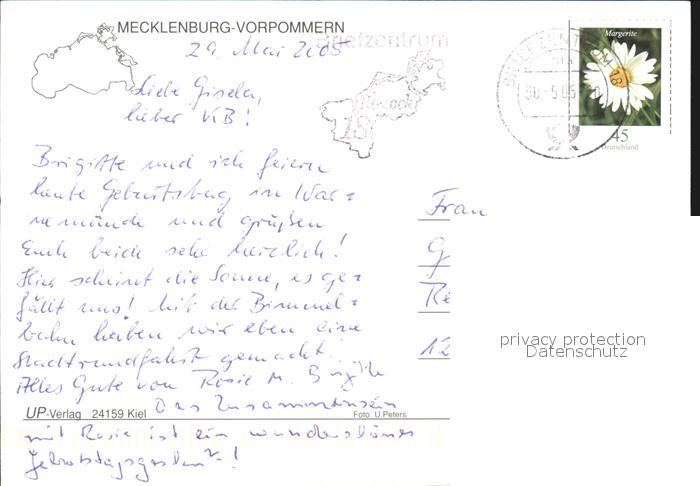 MECKLENBURG-VORPOMMERN
29. Mai 2005
Briefzentrum
Rostock
18
BRIEFZENTRUM 18
30.-5.05
Margerite
45
Deutschland
Liebe Gisela,
lieber
Brigitte und ich feiern
heute Geburtstag in War=
nemünde und grüßen
Euch beide sehr herzlich!
Hier scheint die Sonne, es ge=
fällt uns! Mit der Bimmel=
bahn haben wir eben eine
Stadtrundfahrt gemacht.
Alles Gute von Rosie u. Brigitte
UP-Verlag 24159 Kiel
Foto: U.Peters
Das Zusammensein
mit Rosie ist ein wunderschönes
Frau
G
12
privacy protection
Datenschutz